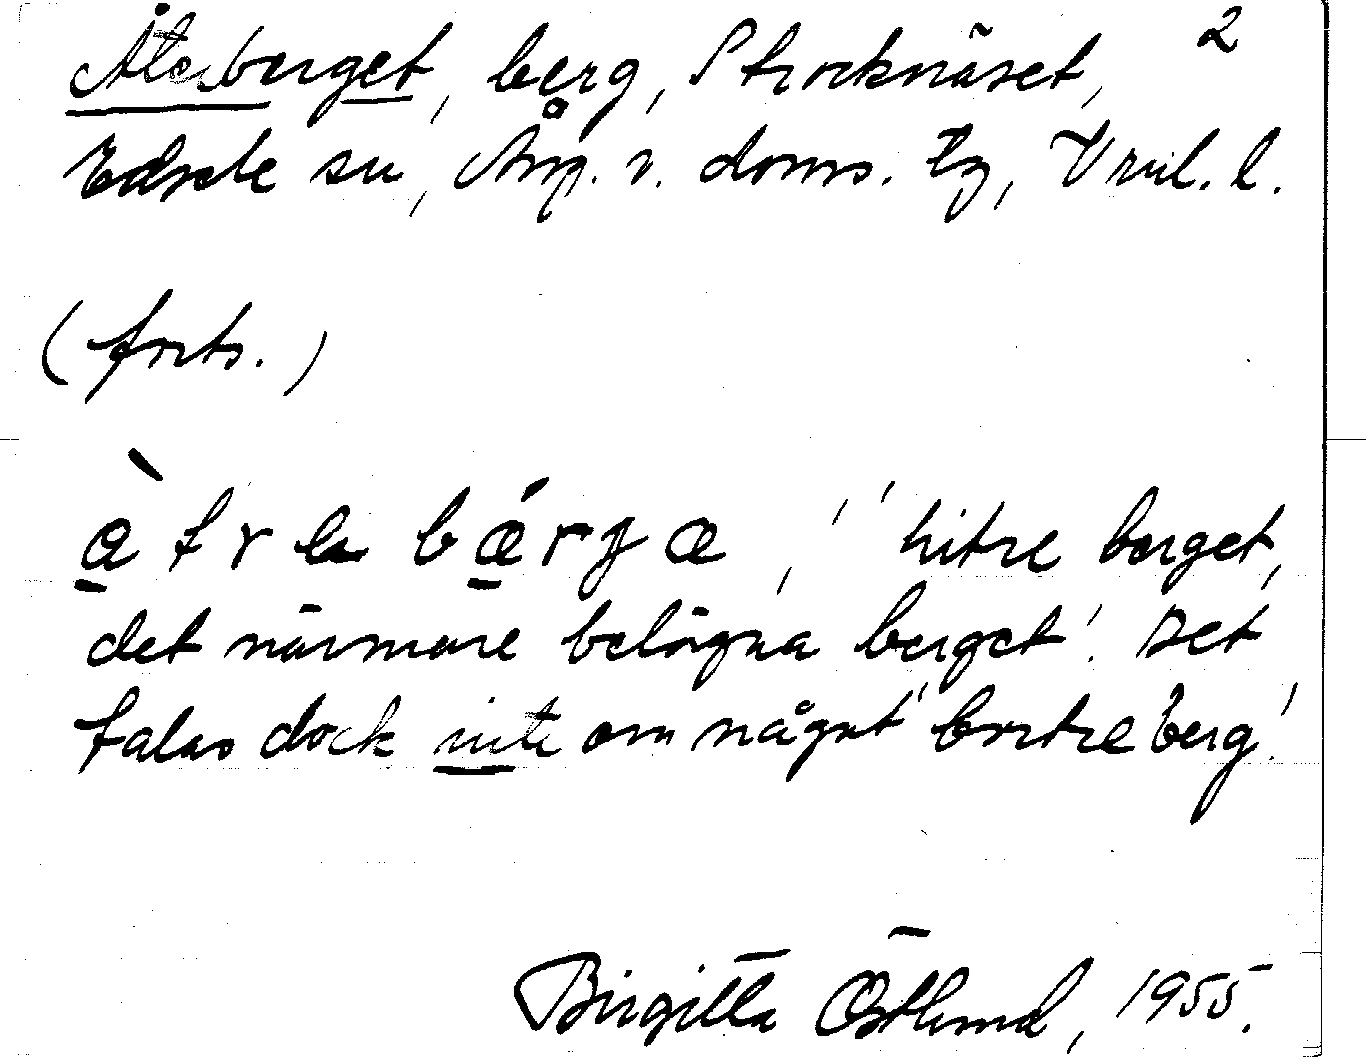 Återberget, berg, Strocknäset, 2
Edsele sn, Ång. v. doms. tg, Vnl. l.
(forts.)
å̀trɛ bǽrjɑ, 'hitre berget,
det närmare belägna berget'. Det
talas dock inte om något 'bortre berg'.
Birgitta Östlund, 1955.